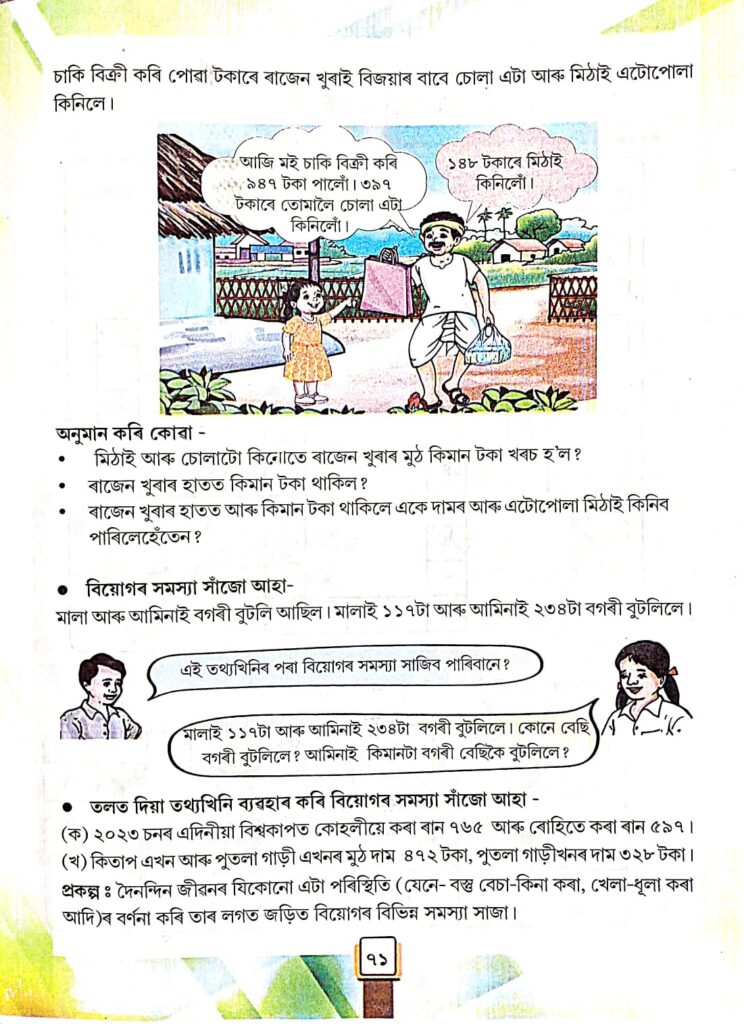 চাকি বিক্ৰী কৰি পোৱা টকাৰে ৰাজেন খুৰাই বিজয়াৰ বাবে চোলা এটা আৰু মিঠাই এটোপোলা
কিনিলে।
আজি মই চাকি বিক্ৰী কৰি
৯৪৭ টকা পালোঁ। ৩৯৭
টকাৰে তোমালৈ চোলা এটা
কিনিলোঁ।
১৪৮ টকাৰে মিঠাই
কিনিলোঁ।
অনুমান কৰি কোৱা -
• মিঠাই আৰু চোলাটো কিনোতে ৰাজেন খুৰাৰ মুঠ কিমান টকা খৰচ হ'ল?
• ৰাজেন খুৰাৰ হাতত কিমান টকা থাকিল?
• ৰাজেন খুৰাৰ হাতত আৰু কিমান টকা থাকিলে একে দামৰ আৰু এটোপোলা মিঠাই কিনিব
পাৰিলেহেঁতেন?
● বিয়োগৰ সমস্যা সাঁজো আহা-
মালা আৰু আমিনাই বগৰী বুটলি আছিল। মালাই ১১৭টা আৰু আমিনাই ২৩৪টা বগৰী বুটলিলে।
এই তথ্যখিনিৰ পৰা বিয়োগৰ সমস্যা সাজিব পাৰিবানে?
মালাই ১১৭টা আৰু আমিনাই ২৩৪টা বগৰী বুটলিলে। কোনে বেছি
বগৰী বুটলিলে? আমিনাই কিমানটা বগৰী বেছিকৈ বুটলিলে?
● তলত দিয়া তথ্যখিনি ব্যৱহাৰ কৰি বিয়োগৰ সমস্যা সাঁজো আহা -
(ক) ২০২৩ চনৰ এদিনীয়া বিশ্বকাপত কোহলীয়ে কৰা ৰান ৭৬৫ আৰু ৰোহিতে কৰা ৰান ৫৯৭।
(খ) কিতাপ এখন আৰু পুতলা গাড়ী এখনৰ মুঠ দাম ৪৭২ টকা, পুতলা গাড়ীখনৰ দাম ৩২৮ টকা।
প্ৰকল্প ঃ দৈনন্দিন জীৱনৰ যিকোনো এটা পৰিস্থিতি (যেনে- বস্তু বেচা-কিনা কৰা, খেলা-ধূলা কৰা
আদি)ৰ বৰ্ণনা কৰি তাৰ লগত জড়িত বিয়োগৰ বিভিন্ন সমস্যা সাজা।
৭১